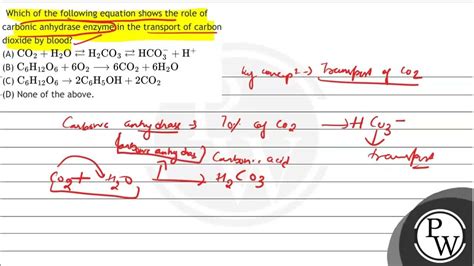 Which of the following equation shows the role of
carbonic anhydrase enzyme in the transport of carbon
dioxide by blood?
(A) CO₂ + H₂O ⇌ H₂CO₃ ⇌ HCO₃⁻ + H⁺
(B) C₆H₁₂O₆ + 6O₂ ⟶ 6CO₂ + 6H₂O
(C) C₆H₁₂O₆ → 2C₆H₅OH + 2CO₂
(D) None of the above.
Transport of CO₂
Carbonic anhydrase → 70% of CO₂ → HCO₃⁻
transport
Carbonic acid
CO₂ + H₂O → H₂CO₃
PW